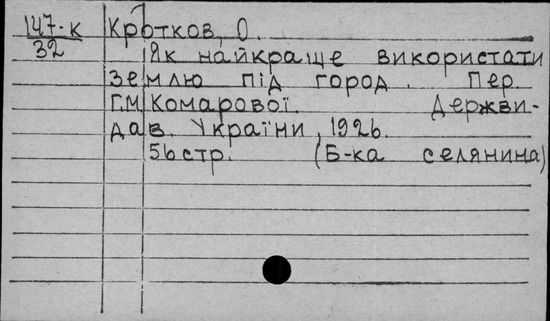 147-к Кротков, О.
32
Як найкраще використати
землю під город. Пер.
Г.М.Комарової. Держви-
дав. України, 1926.
56стр. (Б-ка селянина)